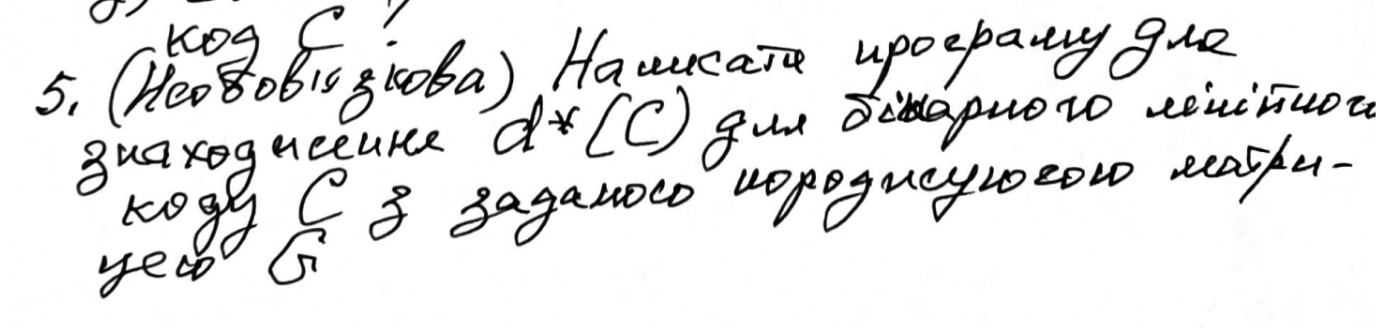 код C?
5. (Необов'язкова) Написати програму для
знаходження d*(C) для бінарного лінійного
коду C з заданою породжуючою матри-
цею G